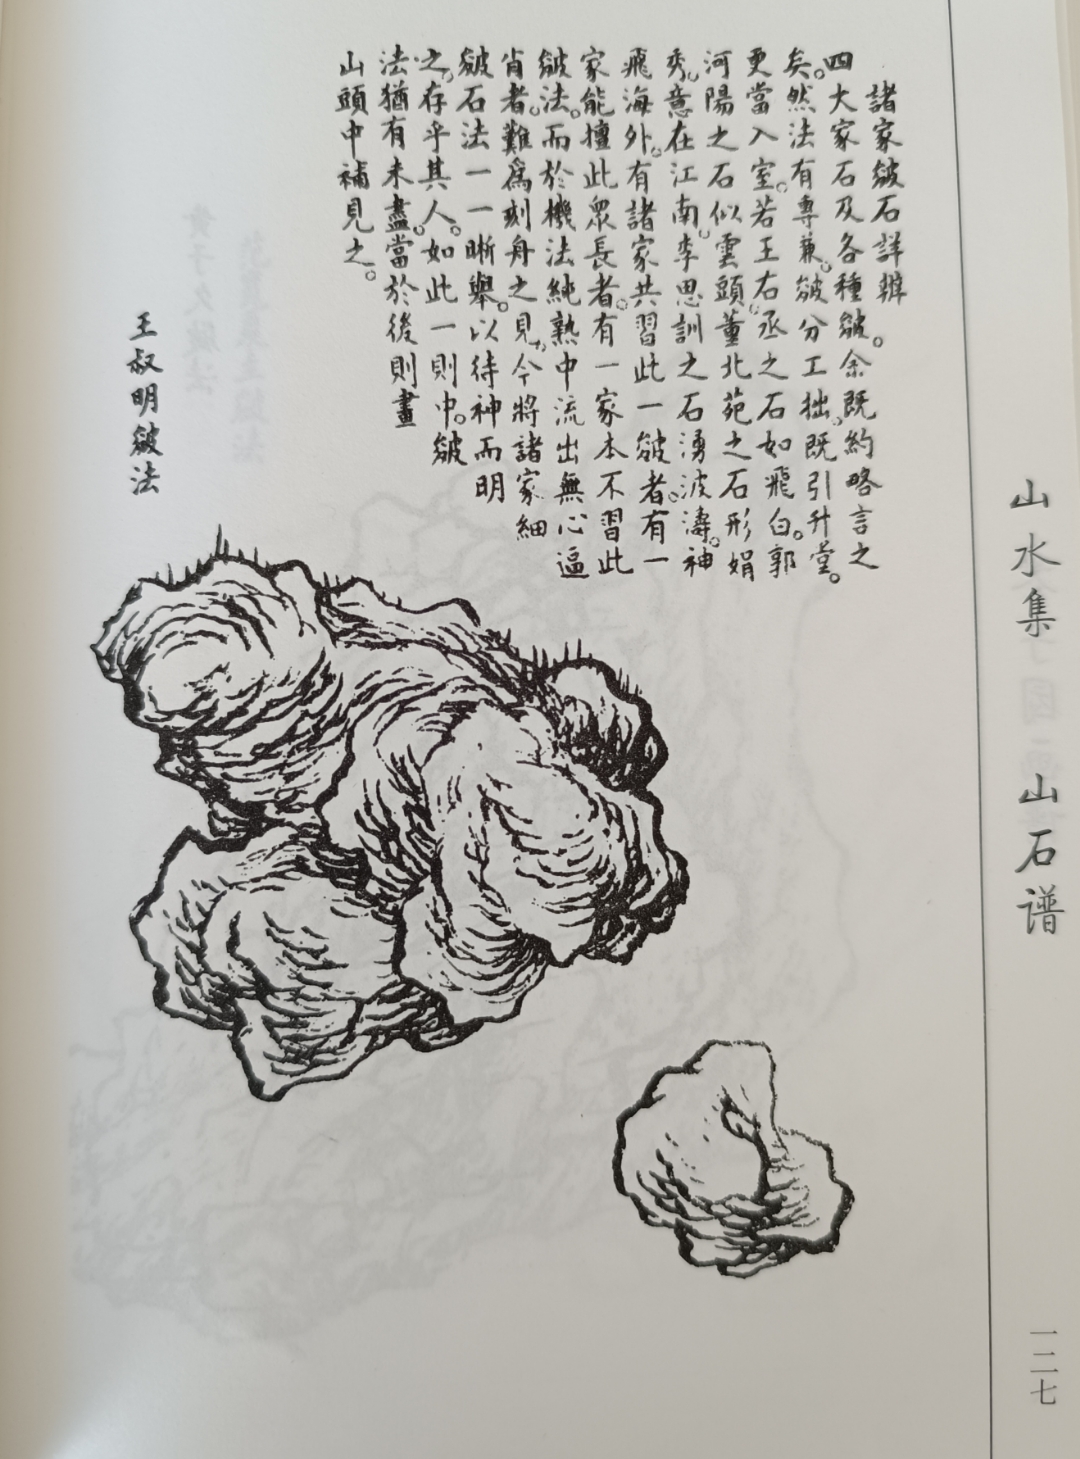 諸家皴石詳辨
四大家石及各種皴。余既約略言之
矣。然法有專兼。皴分工拙。既引升堂。
更當入室。若王右丞之石如飛白。郭
河陽之石似雲頭。董北苑之石形娟
秀。意在江南。李思訓之石湧波濤。神
飛海外。有諸家共習此一皴者。有一
家能擅此眾長者。有一家本不習此
皴法。而於機法純熟中流出無心逼
肖者。難為刻舟之見。今將諸家細
皴石法一一晰舉。以待神而明
之。存乎其人。如此一則中。皴
法猶有未盡。當於後則畫
山頭中補見之。
王叔明皴法
山水集 山石谱
一二七